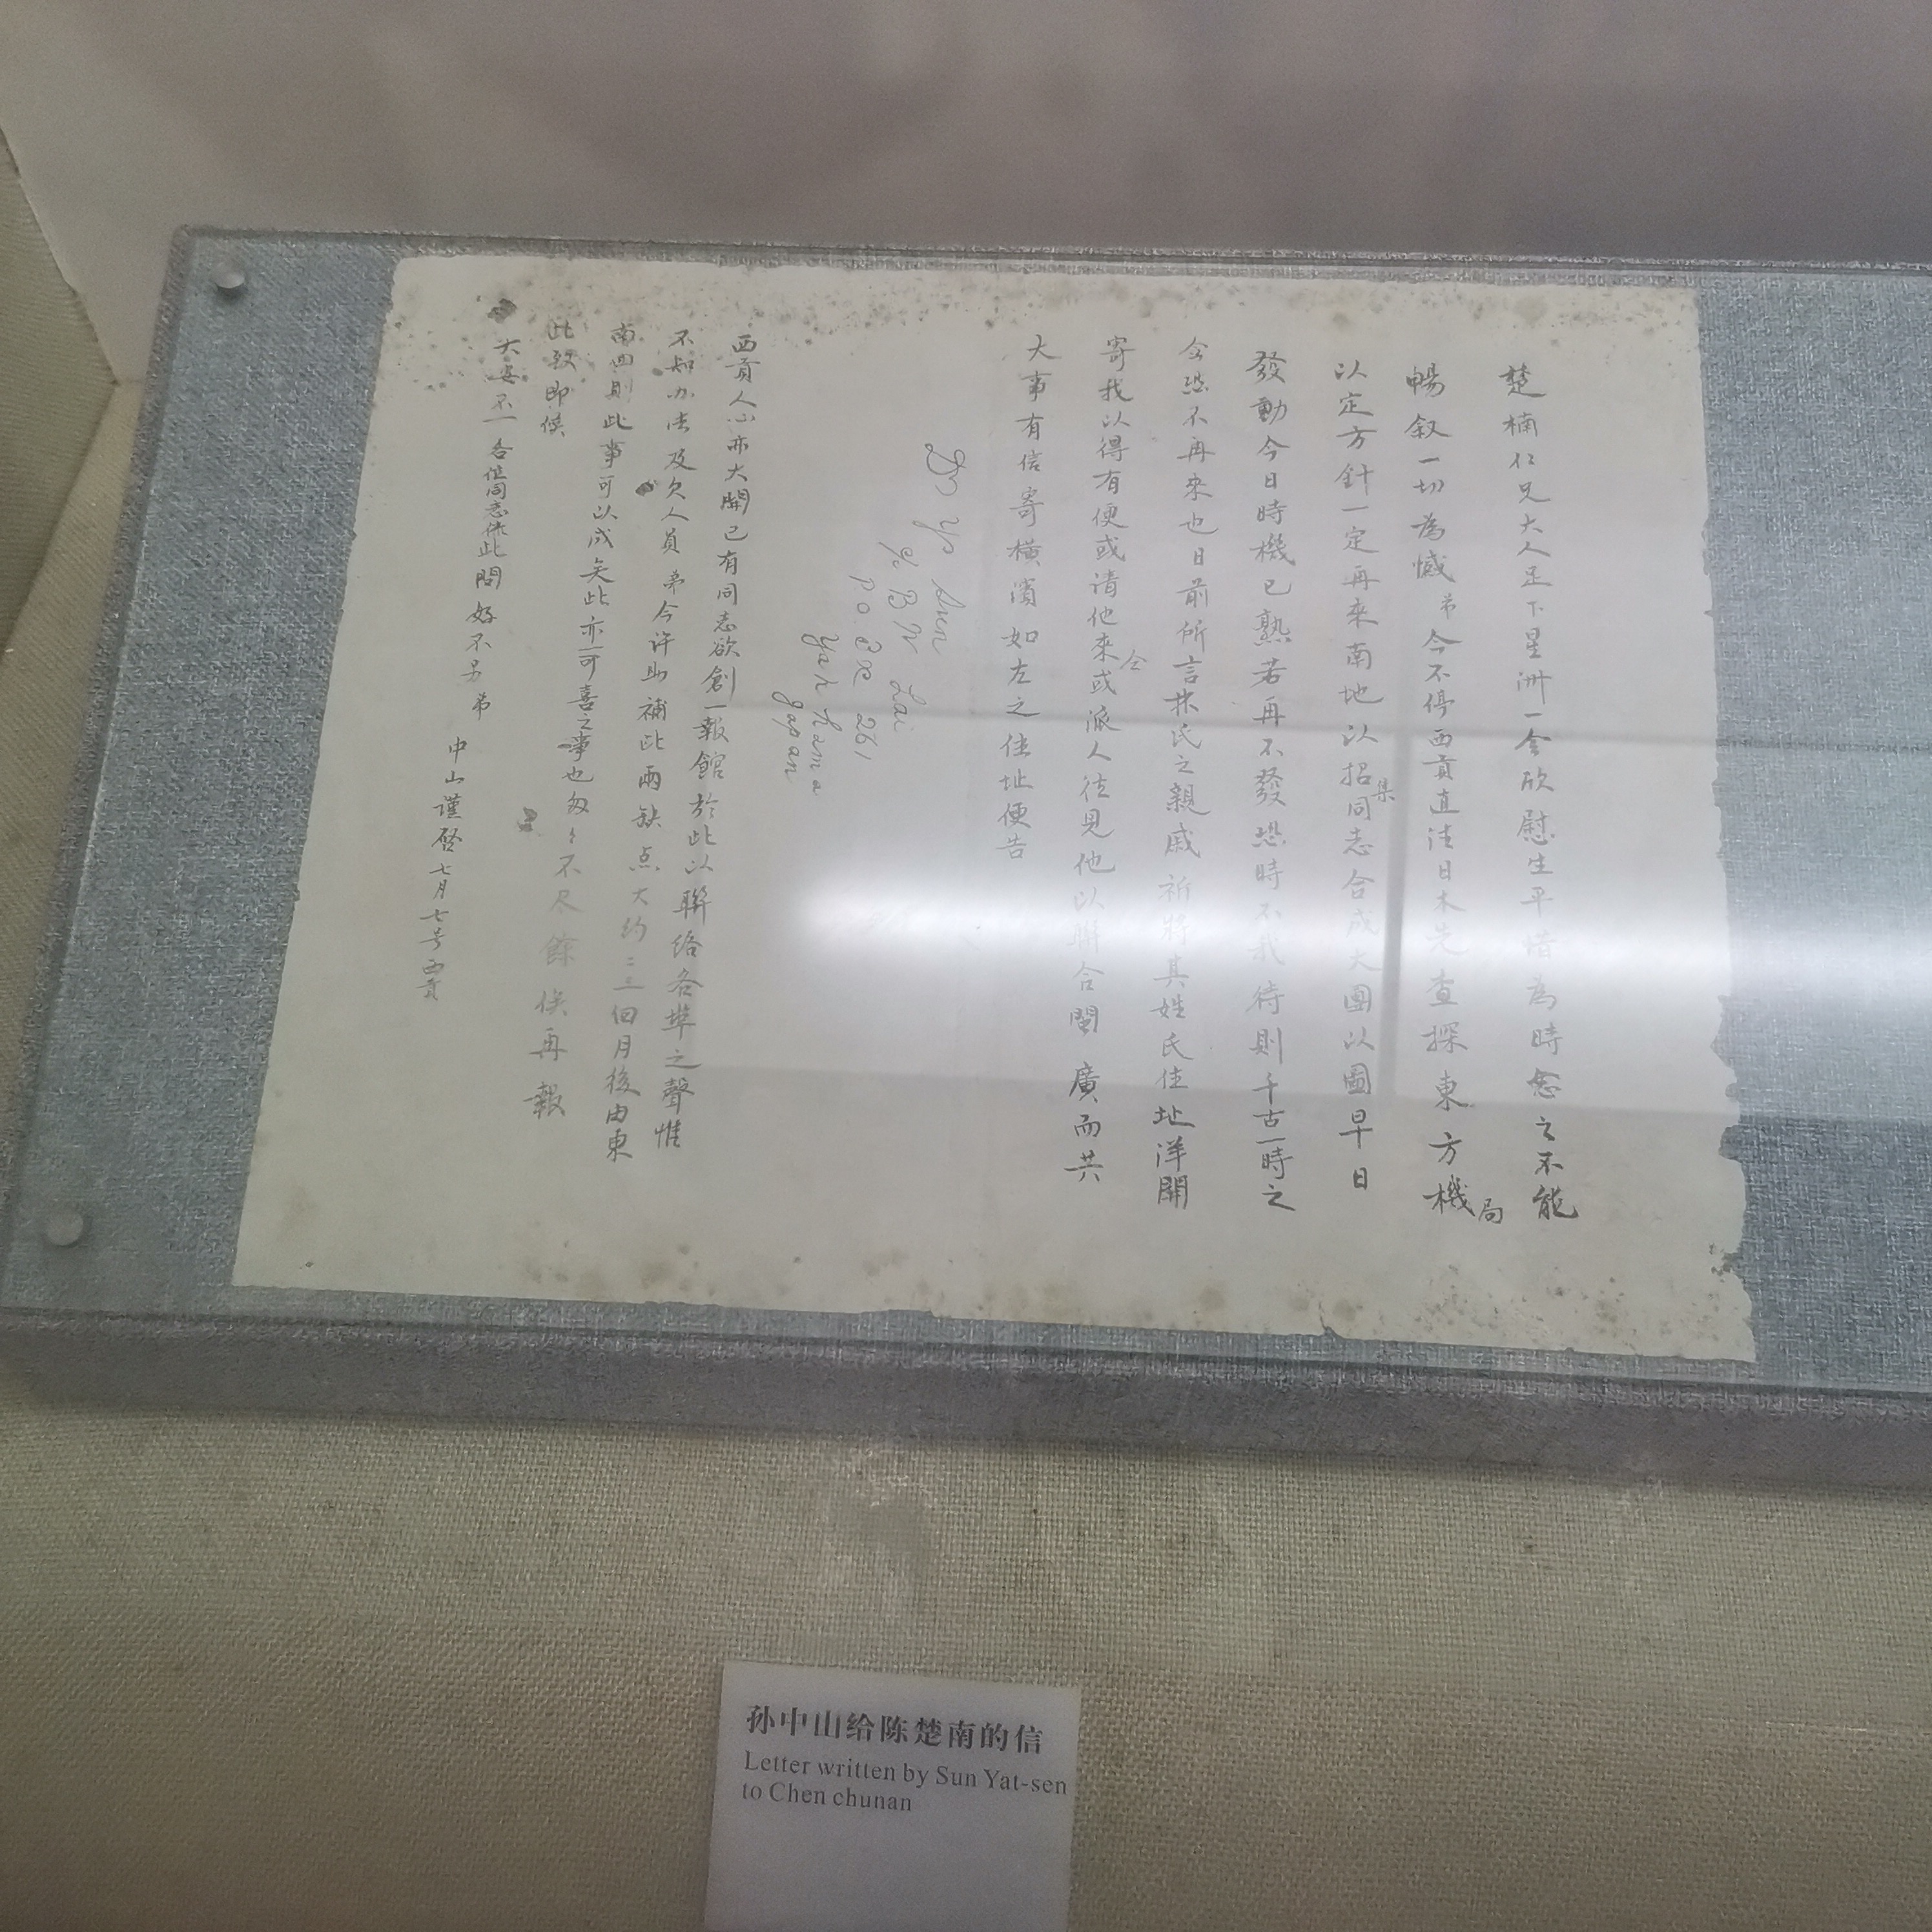 楚楠仁兄大人足下星洲一会欣慰生平惜為時怱々不能
暢叙一切為憾弟今不停西貢直往日本先查探東方機局
以定方針一定再來南地以招集同志合成大團以圖早日
發動今日時機已熟若再不發恐時不我待則千古一時之
会恐不再來也日前所言林氏之親戚祈將其姓氏住址洋關
寄我以得有便或請他來会或派人徃見他以聯合閩廣而共
大事有信寄橫濱如左之住址便告
Dr Y. Sun
℅ B W Lai
P.O. Bx 261
Yokohama
Japan
西貢人心亦大開已有同志欲創一報館於此以聯絡各埠之聲惟
不知办法及欠人員弟今许助補此兩缺点大約二三個月後由東
南囬則此事可以成矣此亦可喜之事也匆々不尽餘俟再報
此致即候
大安不一各位同志併此問好不另弟
中山謹啓七月七号西貢
孙中山给陈楚南的信
Letter written by Sun Yat-sen
to Chen chunan